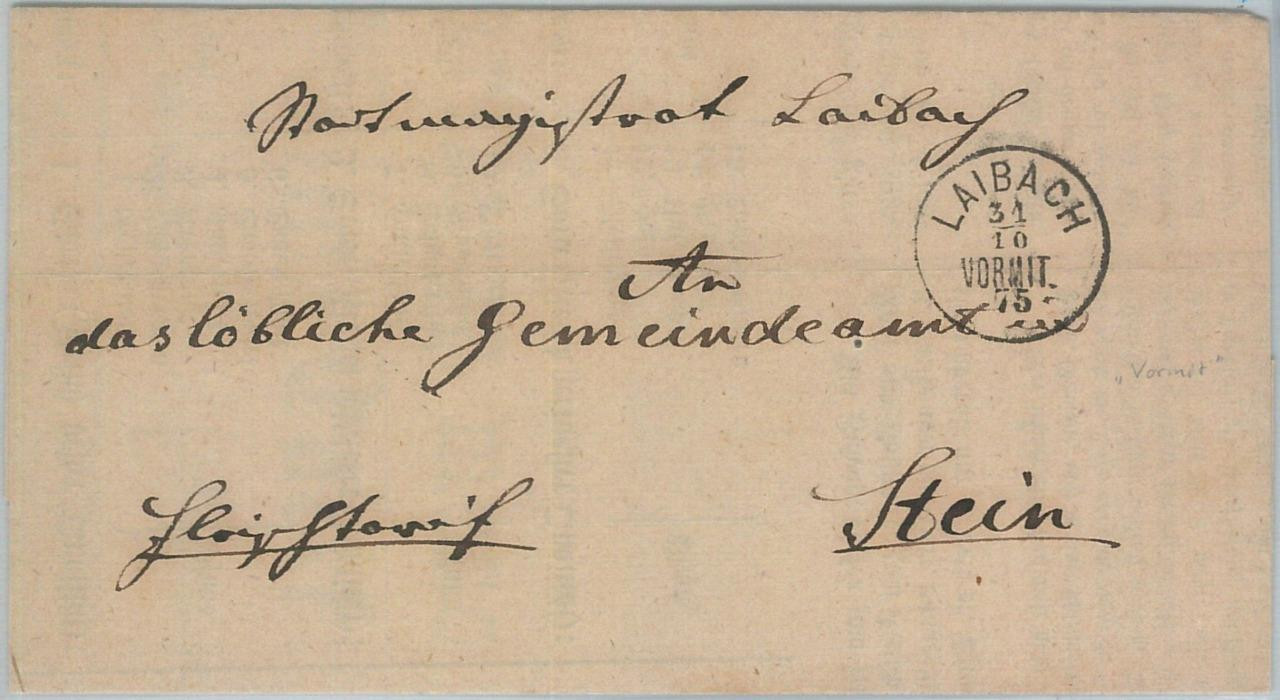 Stadtmagistrat Laibach
LAIBACH
31
10
VORMIT.
75
An
das löbliche Gemeindeamt in
„Vormit"
Fleischtarif
Stein